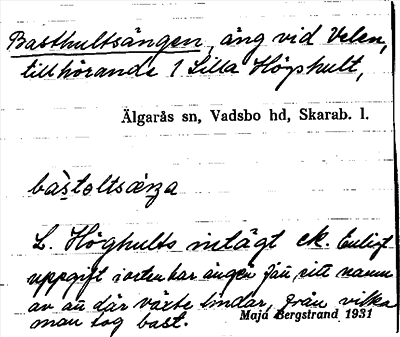 Basthultsängen, äng vid Velen,
tillhörande 1 Lilla Höghult,
Älgarås sn, Vadsbo hd, Skarab. l.
L. Höghults intägt ek. Enligt
uppgift i orten har ängen fått sitt namn
av att där växte lindar, från vilka
man tog bast.
Maja Bergstrand 1931